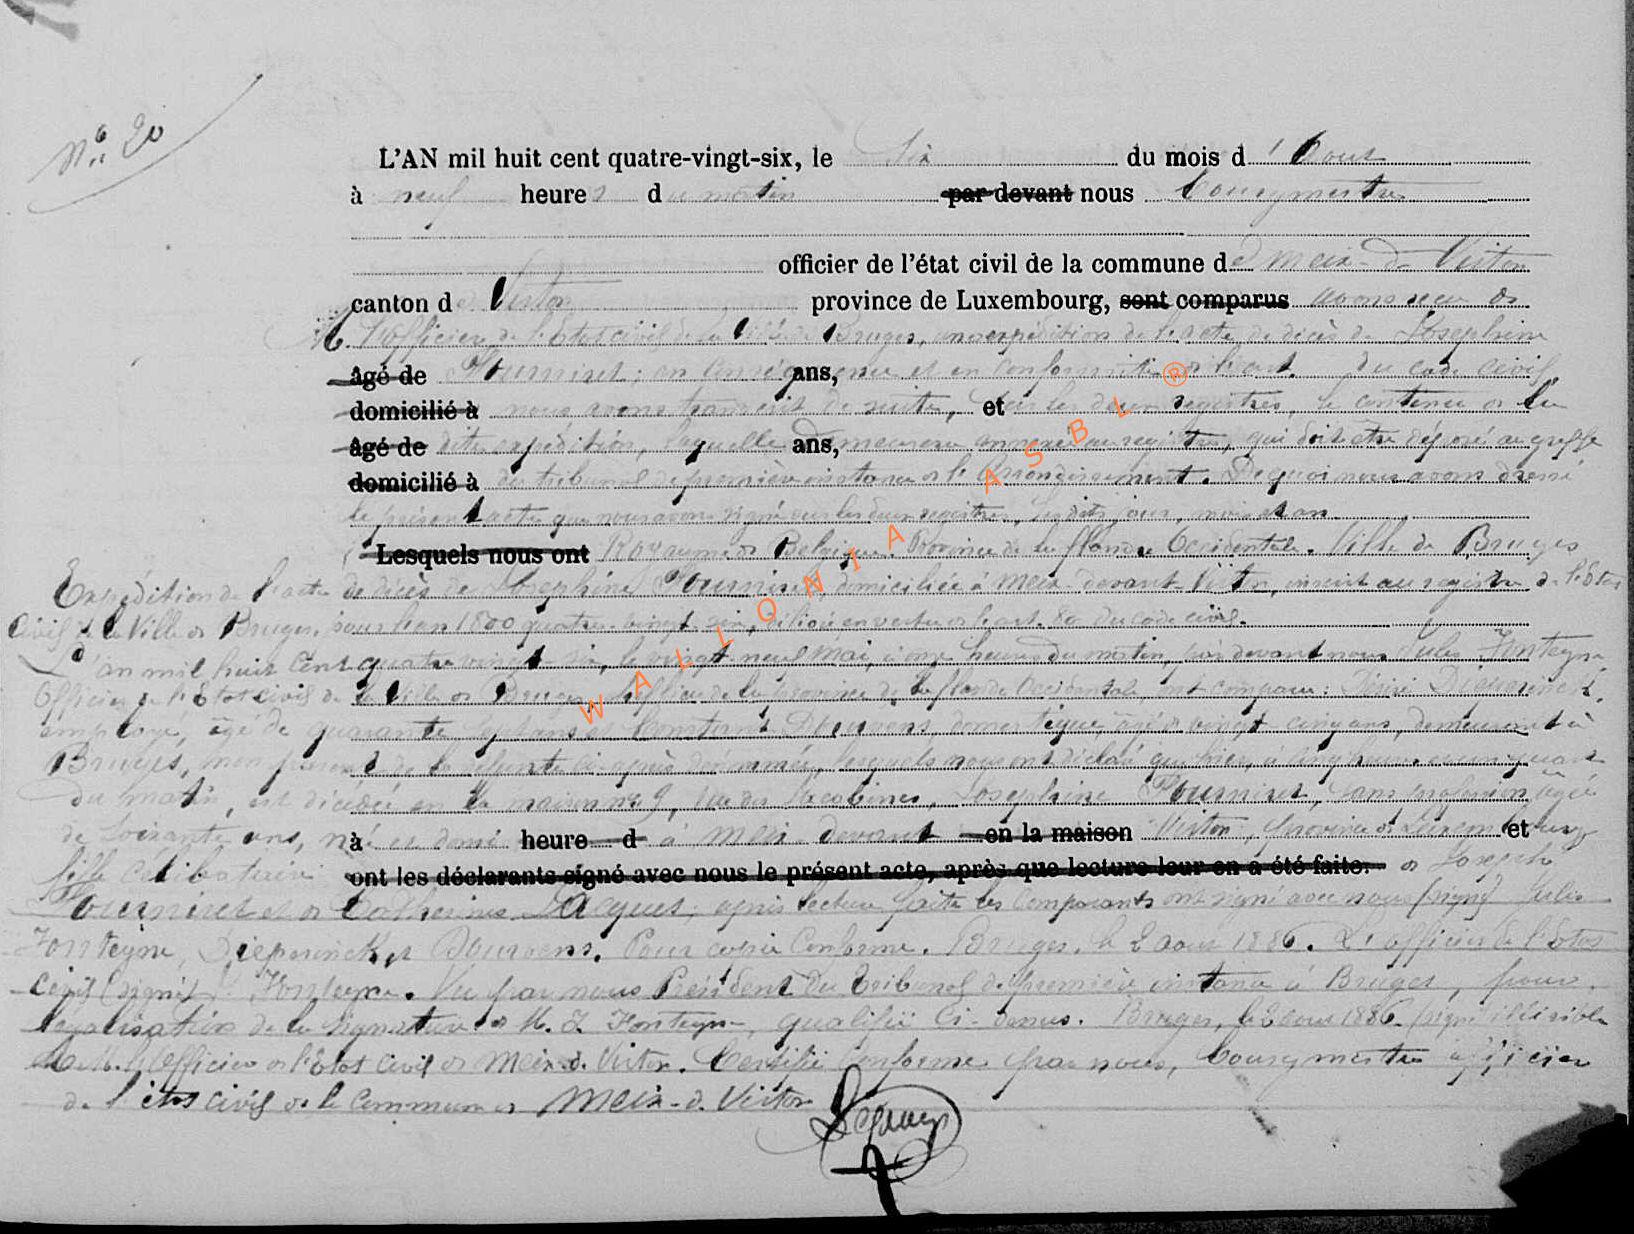 N° 20
L'AN mil huit cent quatre-vingt-six, le Six du mois d'Aout
à neuf heures du matin par devant nous bourgmestre
officier de l'état civil de la commune de Meix-d-Virton
canton de Virton province de Luxembourg, sont comparus avons reçu de
M. l'officier de l'Etat civil de la Ville de Bruges, une expédition de l'acte de décès de Josephine
âgé de Fourniret; en conséquence ans, et en conformité de l'art. du code civil
domicilié à nous avons transcrit de suite, et sur les deux registres, le contenu de la
âgé de dite expédition, laquelle ans, demeurera annexée au registre, qui doit être déposé au greffe
domicilié à du tribunal de première instance de l'arrondissement. De quoi nous avons dressé
le présent acte que nous avons signé sur les deux registres, les dits jour, mois et an.
Lesquels nous ont Royaume de Belgique. Province de la flandre Occidentale. Ville de Bruges
Expédition de l'acte de décès de Josephine Fourniret, domiciliée à Meix-devant-Virton, inscrit au registre de l'Etat
Civil de la Ville de Bruges, pour l'an 1800 quatre-vingt-six, délivré en vertu de l'art. 80 du code civil.
L'an mil huit cent quatre-vingt-six, le vingt-neuf Mai, à onze heures du matin, par devant nous Jules Fonteyne
Officier de l'Etat Civil de la Ville de Bruges, chef lieu de la province de la flandre Occidentale, ont comparu: Désiré
employé, âgé de quarante sept ans et Constant domestique, âgé de vingt cinq ans, demeurant à
Bruges, non parents de la défunte ci-après dénommée, lesquels nous ont déclaré que hier, à cinq heures et un quart
du matin, est décédée en la maison n° 9, rue des Jacobines, Josephine Fourniret, sans profession, âgée
de soixante ans, née et domi à heure d à Meix-devant en la maison Virton, province de Luxembourg et
fille célibataire ont les déclarants signé avec nous le présent acte, après que lecture leur en a été faite. de Joseph
Fourniret et de Catherine Jacques; après lecture faite les comparants ont signé avec nous (signé) Jules
Fonteyne, et Pour copie conforme. Bruges, le 2 aout 1886. L'officier de l'Etat
civil (signé) J. Fonteyne. Vu par nous Président du tribunal de première instance à Bruges, pour
légalisation de la signature de M. J. Fonteyne, qualifié ci-dessus. Bruges, le 2 aout 1886. (signé) illisible
A M. l'officier de l'Etat Civil de Meix-d-Virton. Certifié conforme par nous, bourgmestre officier
de l'état civil de la commune de Meix-d-Virton
WALLONIA ASBL ®